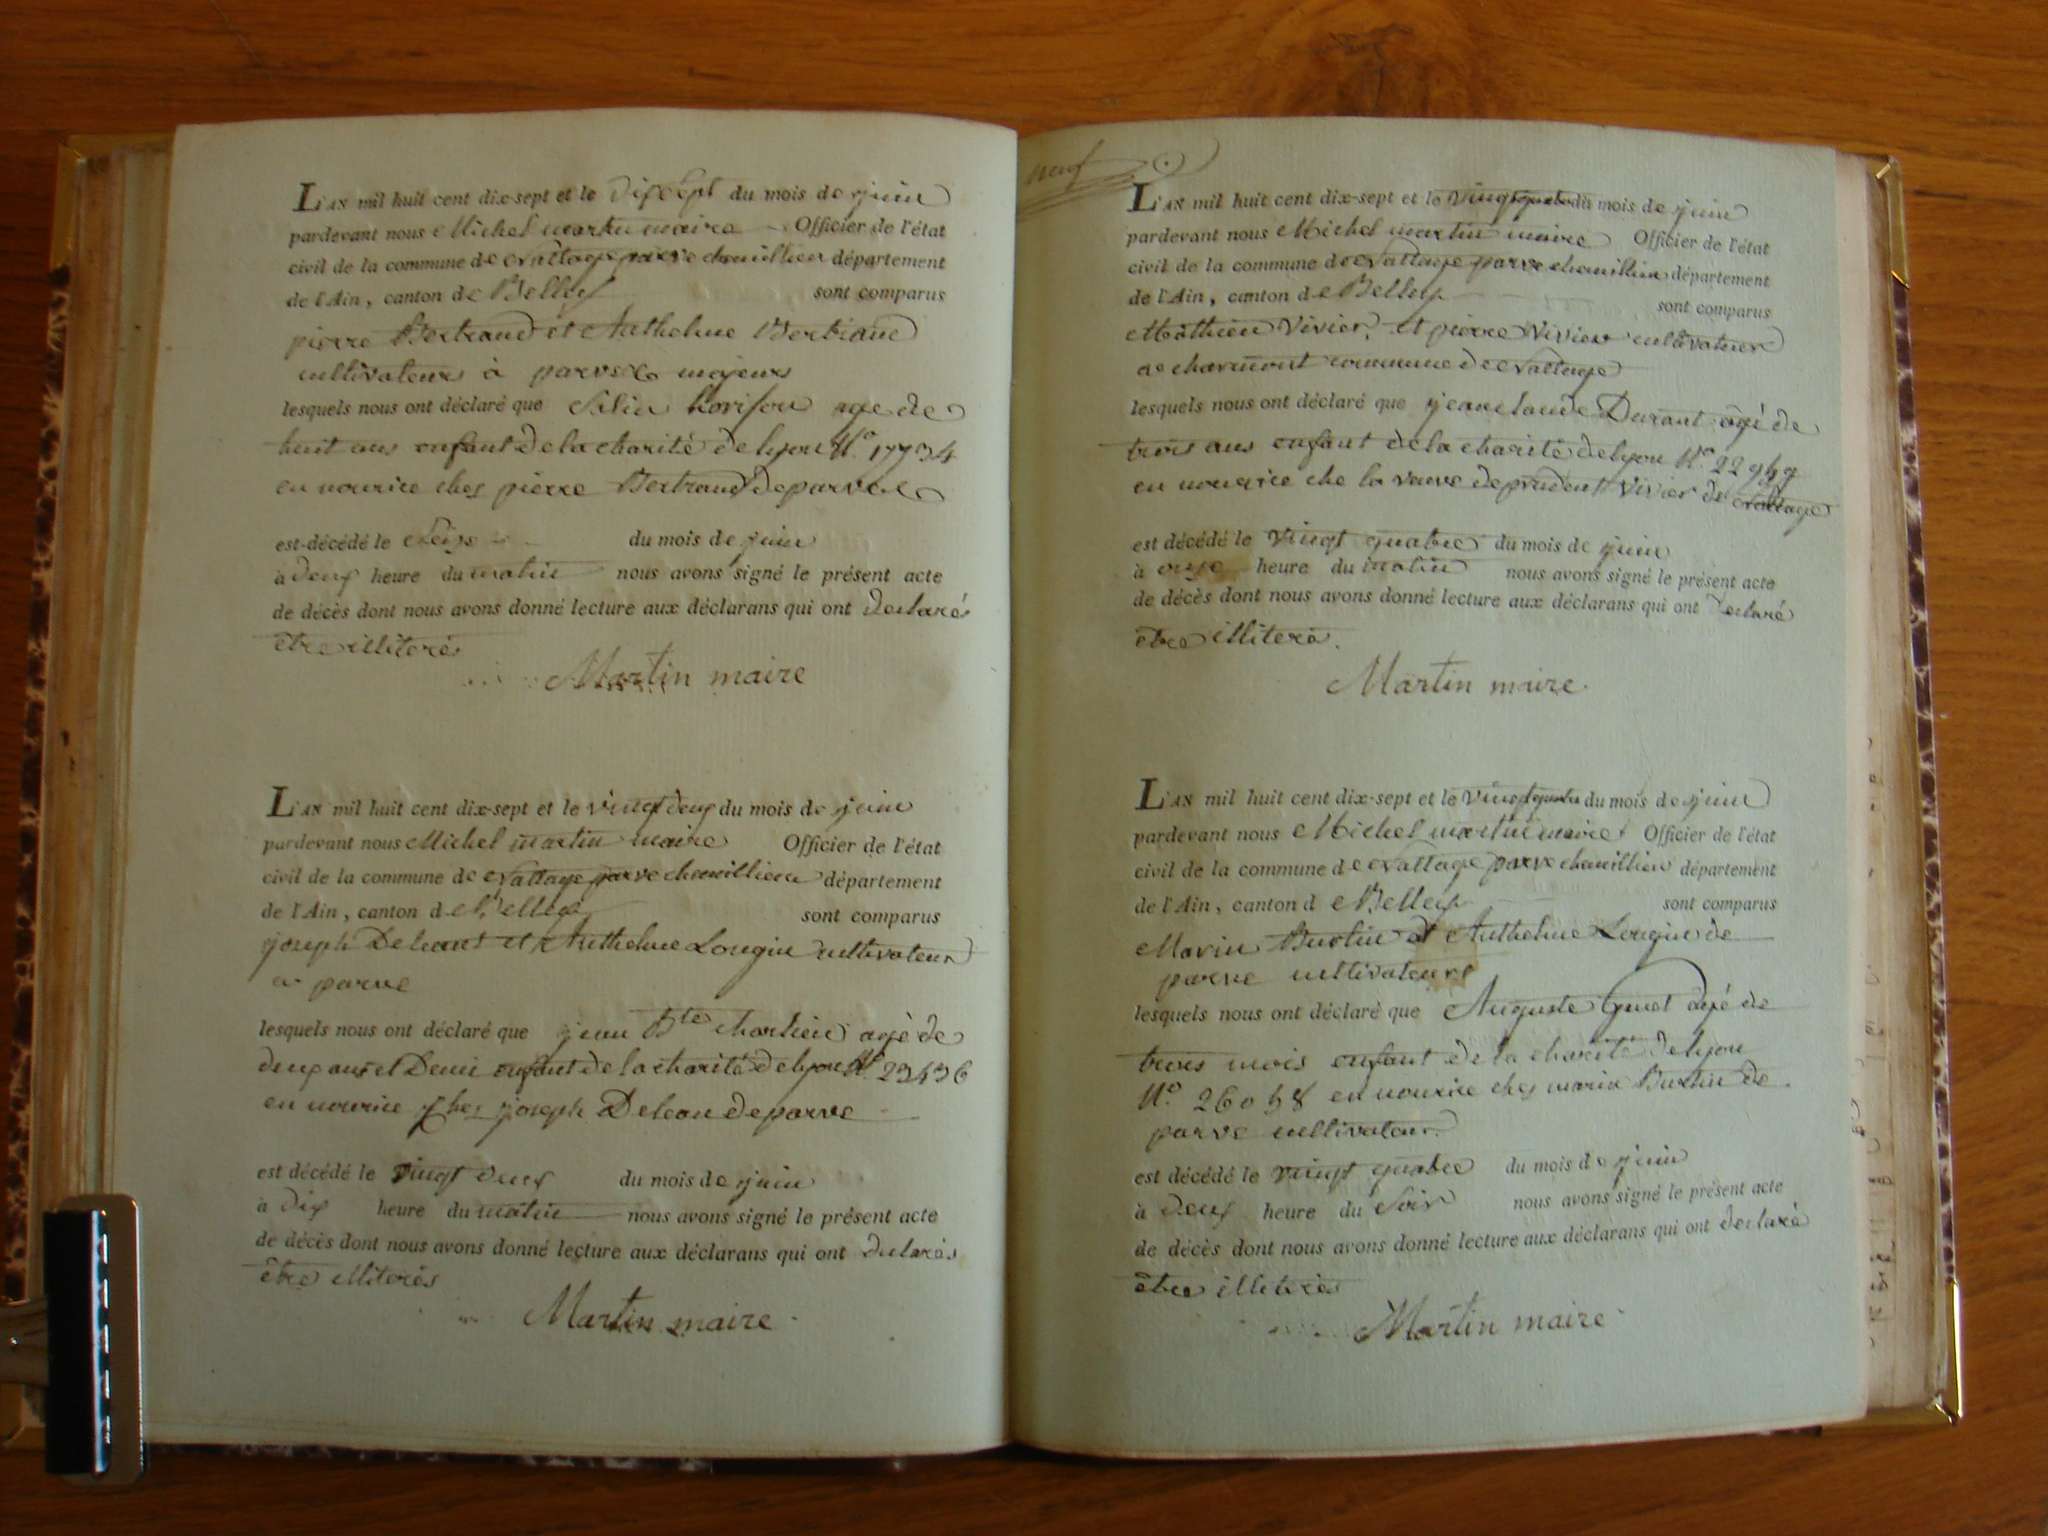 L'AN mil huit cent dix-sept et le dixsept du mois de juin
pardevant nous Michel martin maire Officier de l'état
civil de la commune de nattage parve chemillieu département
de l'Ain, canton de Belley sont comparus
pierre Bertrand et Anthelme Bertrand
cultivateurs à parves majeurs
lesquels nous ont déclaré que age de
huit ans enfant de la charité de lyon N.° 17734
en nourice ches pierre Bertrand de parve
est décédé le seize du mois de juin
à deux heure du matin nous avons signé le présent acte
de décès dont nous avons donné lecture aux déclarans qui ont declarés
être illiterés
Martin maire
L'AN mil huit cent dix-sept et le vingt deux du mois de juin
pardevant nous Michel martin maire Officier de l'état
civil de la commune de nattage parve chemillieu département
de l'Ain, canton de Belley sont comparus
joseph et Anthelme Longin cultivateur
a parve
lesquels nous ont déclaré que jean Bte charlieu agé de
deux ans et Demi enfant de la charité de lyon N.° 23436
en nourice ches joseph de parve
est décédé le vingt deux du mois de juin
à dix heure du matin nous avons signé le présent acte
de décès dont nous avons donné lecture aux déclarans qui ont declarés
être illiterés
Martin maire
neuf
L'AN mil huit cent dix-sept et le vingtquatre du mois de juin
pardevant nous Michel martin maire Officier de l'état
civil de la commune de nattage parve chemillieu département
de l'Ain, canton de Belley sont comparus
Mathieu Vivier et pierre Vivier cultivateur
de charmont commune de nattage
lesquels nous ont déclaré que jean claude Durant agé de
trois ans enfant de la charité de lyon N.°
en nourice che la veuve de prudent Vivier de nattage
est décédé le vingt quatre du mois de juin
à onze heure du matin nous avons signé le présent acte
de décès dont nous avons donné lecture aux déclarans qui ont declaré
être illiteré.
Martin maire
L'AN mil huit cent dix-sept et le vingtquatre du mois de juin
pardevant nous Michel martin maire Officier de l'état
civil de la commune de nattage parve chemillieu département
de l'Ain, canton de Belley sont comparus
Marin Burlin et Anthelme Longin de
parve cultivateurs
lesquels nous ont déclaré que Auguste agé de
trois mois enfant de la charité de lyon
N.° 26058 en nourice ches marin Burlin de
parve cultivateur
est décédé le vingt quatre du mois de juin
à deux heure du soir nous avons signé le présent acte
de décès dont nous avons donné lecture aux déclarans qui ont declaré
être illiterés
Martin maire